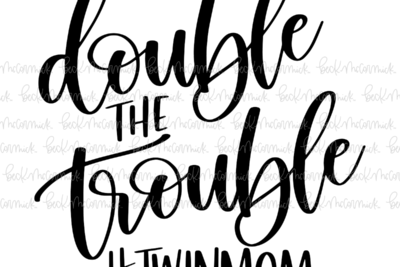 double
THE
trouble
#TWINMOM